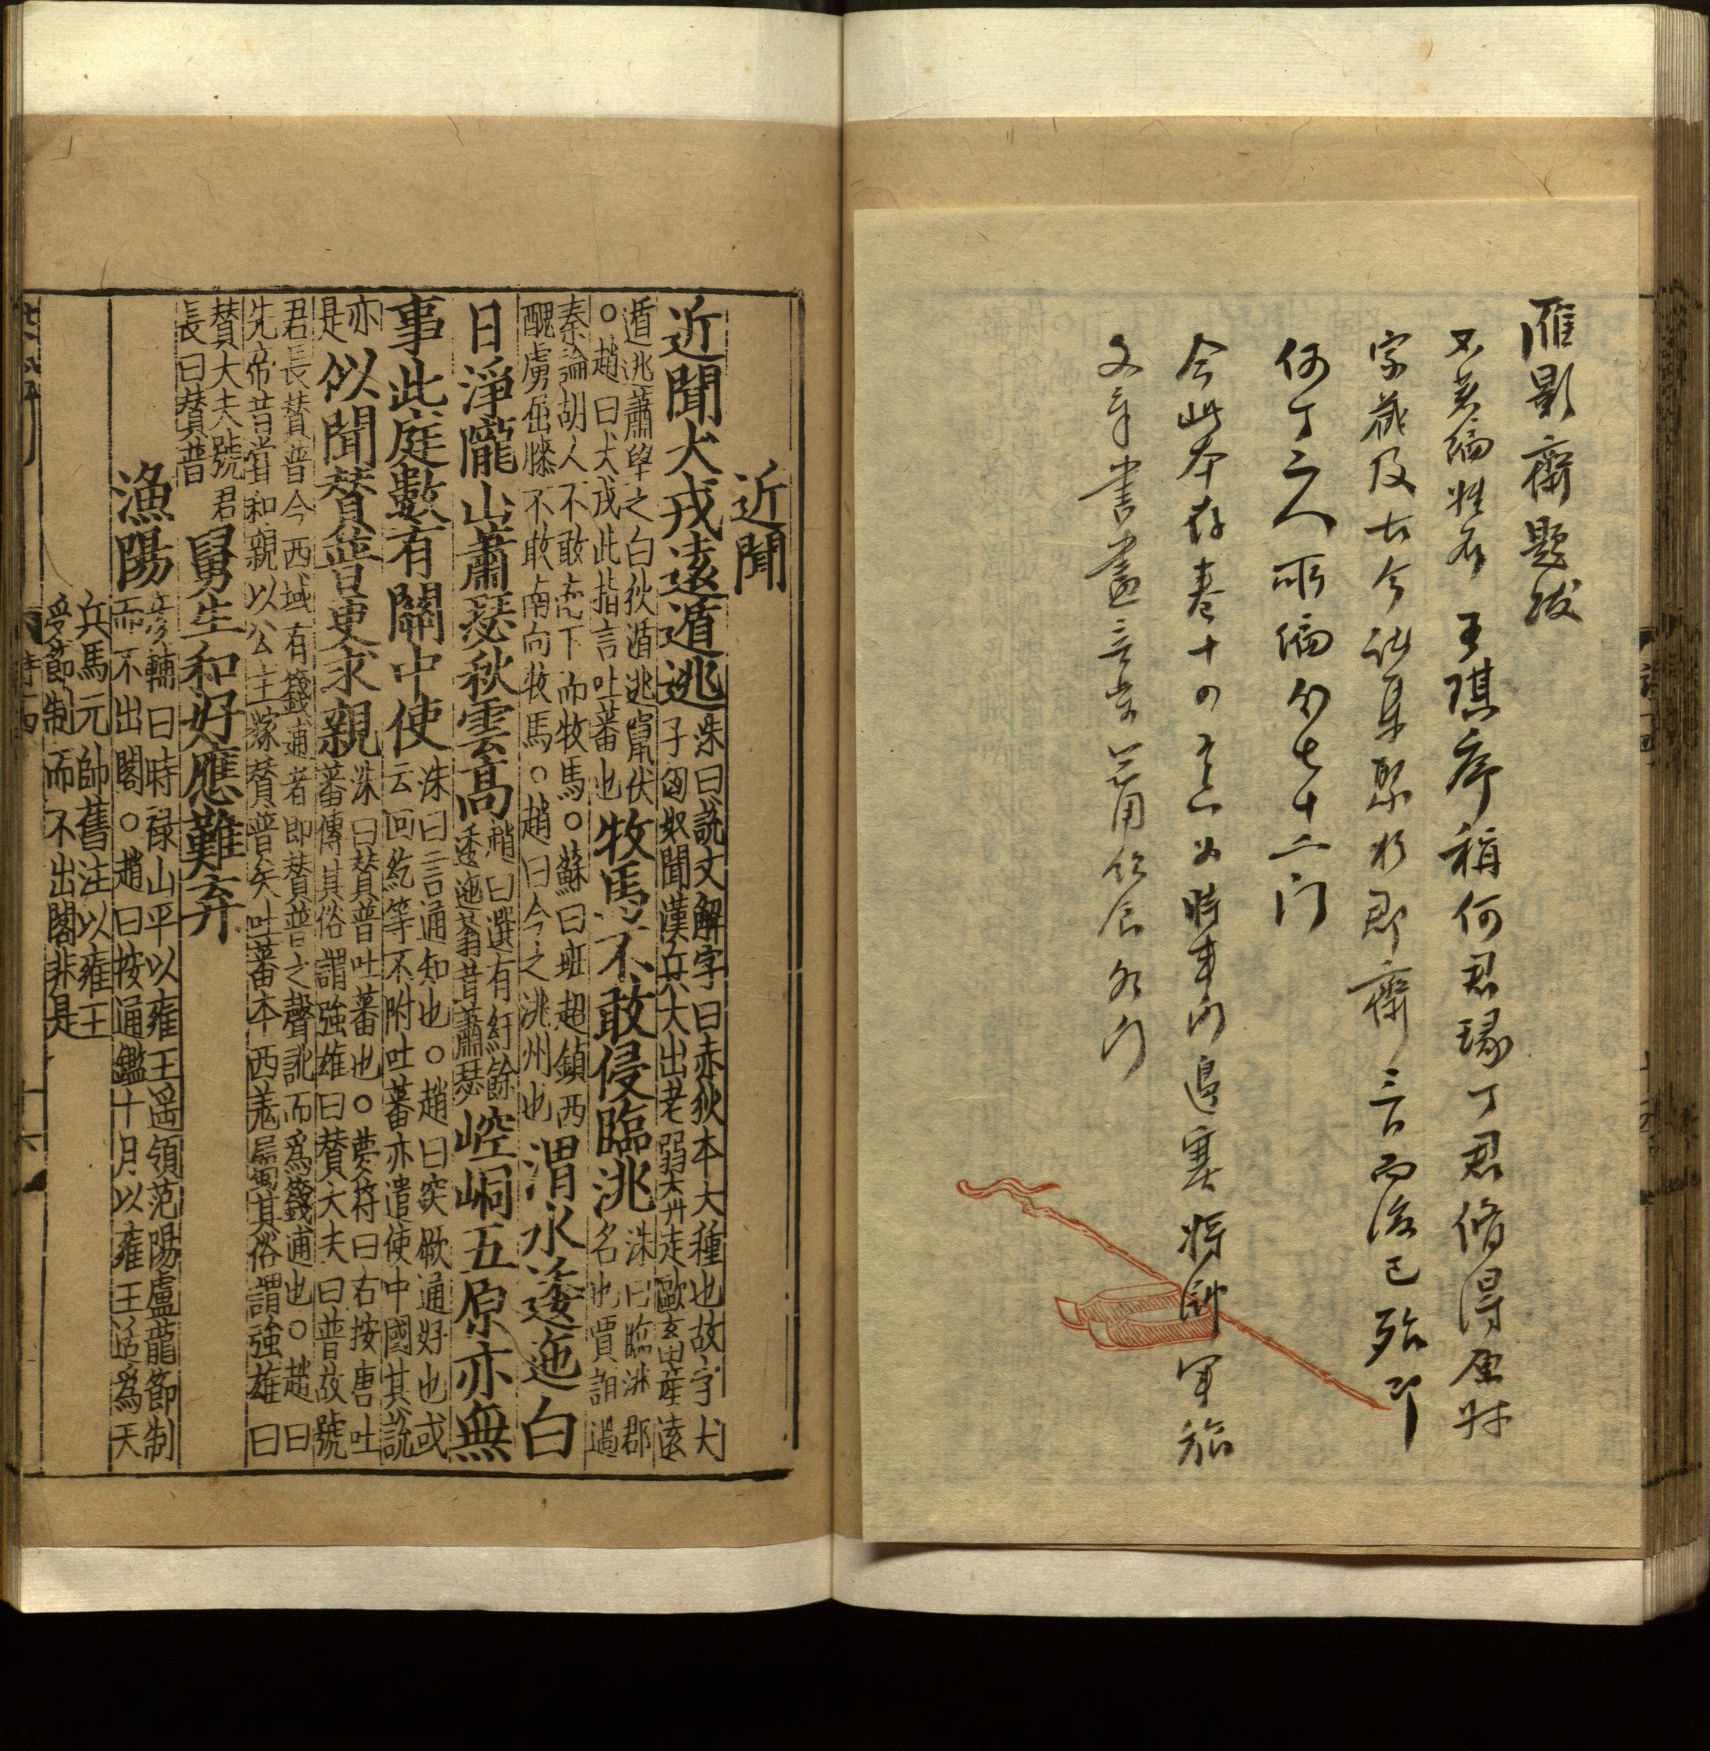 雁影齋題跋
不著編輯姓名 王琪序稱何君瑑丁君脩得原叔
家藏及古今諸集聚於郡齋三百而後已殆即
何丁二人所編分七十二门
今此本存卷十四之六 时事门 邊塞 將帥 軍旅
文章 書畫 音樂 器用 飲食 各门
近聞
近聞犬戎遠遁逃
洙曰説文解字曰赤狄本大種也故字犬
子匈奴聞漢兵大出老弱犇走歐畜産遠
遁逃蕭望之曰狄遁逃竄伏
○趙曰犬戎此指言吐蕃也
牧馬不敢侵臨洮
洙曰臨洮郡
名也賈誼過
秦論胡人不敢南下而牧馬○蘇曰班超鎮西
醜虜屈膝不敢南向牧馬○趙曰今之洮州也
渭水逶迤白
日淨隴山蕭瑟秋雲高
趙曰選有紆餘
逶迤蓊昔蕭瑟
崆峒五原亦無
事此庭數有關中使
洙曰言通知也○趙曰突厥通好也或
云回紇等不附吐蕃亦遣使中國其説
亦
是
似聞贊普更求親
洙曰贊普吐蕃也○夢符曰右按唐吐
蕃傳其俗謂強雄曰贊大夫曰普故號
君長贊普今西域有籛逋者即贊普之聲訛而爲籛逋也○趙曰
先帝昔嘗和親以公主嫁贊普矣吐蕃本西羌屬其俗謂強雄曰
贊大夫號君
長曰贊普
舅生和好應難弃
漁陽
彦輔曰時禄山平以雍王遥領范陽盧龍節制
而不出閣○趙曰按通鑑十月以雍王适爲天
兵馬元帥舊注以雍王
受節制而不出閣非是